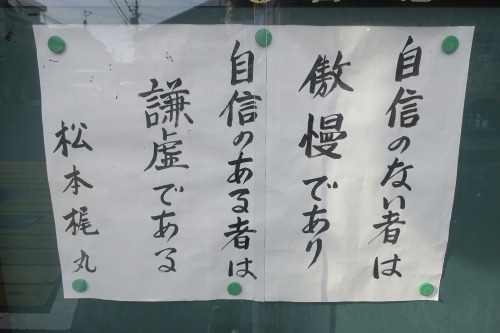 自信のない者は
傲慢であり
自信のある者は
謙虚である
松本梶丸